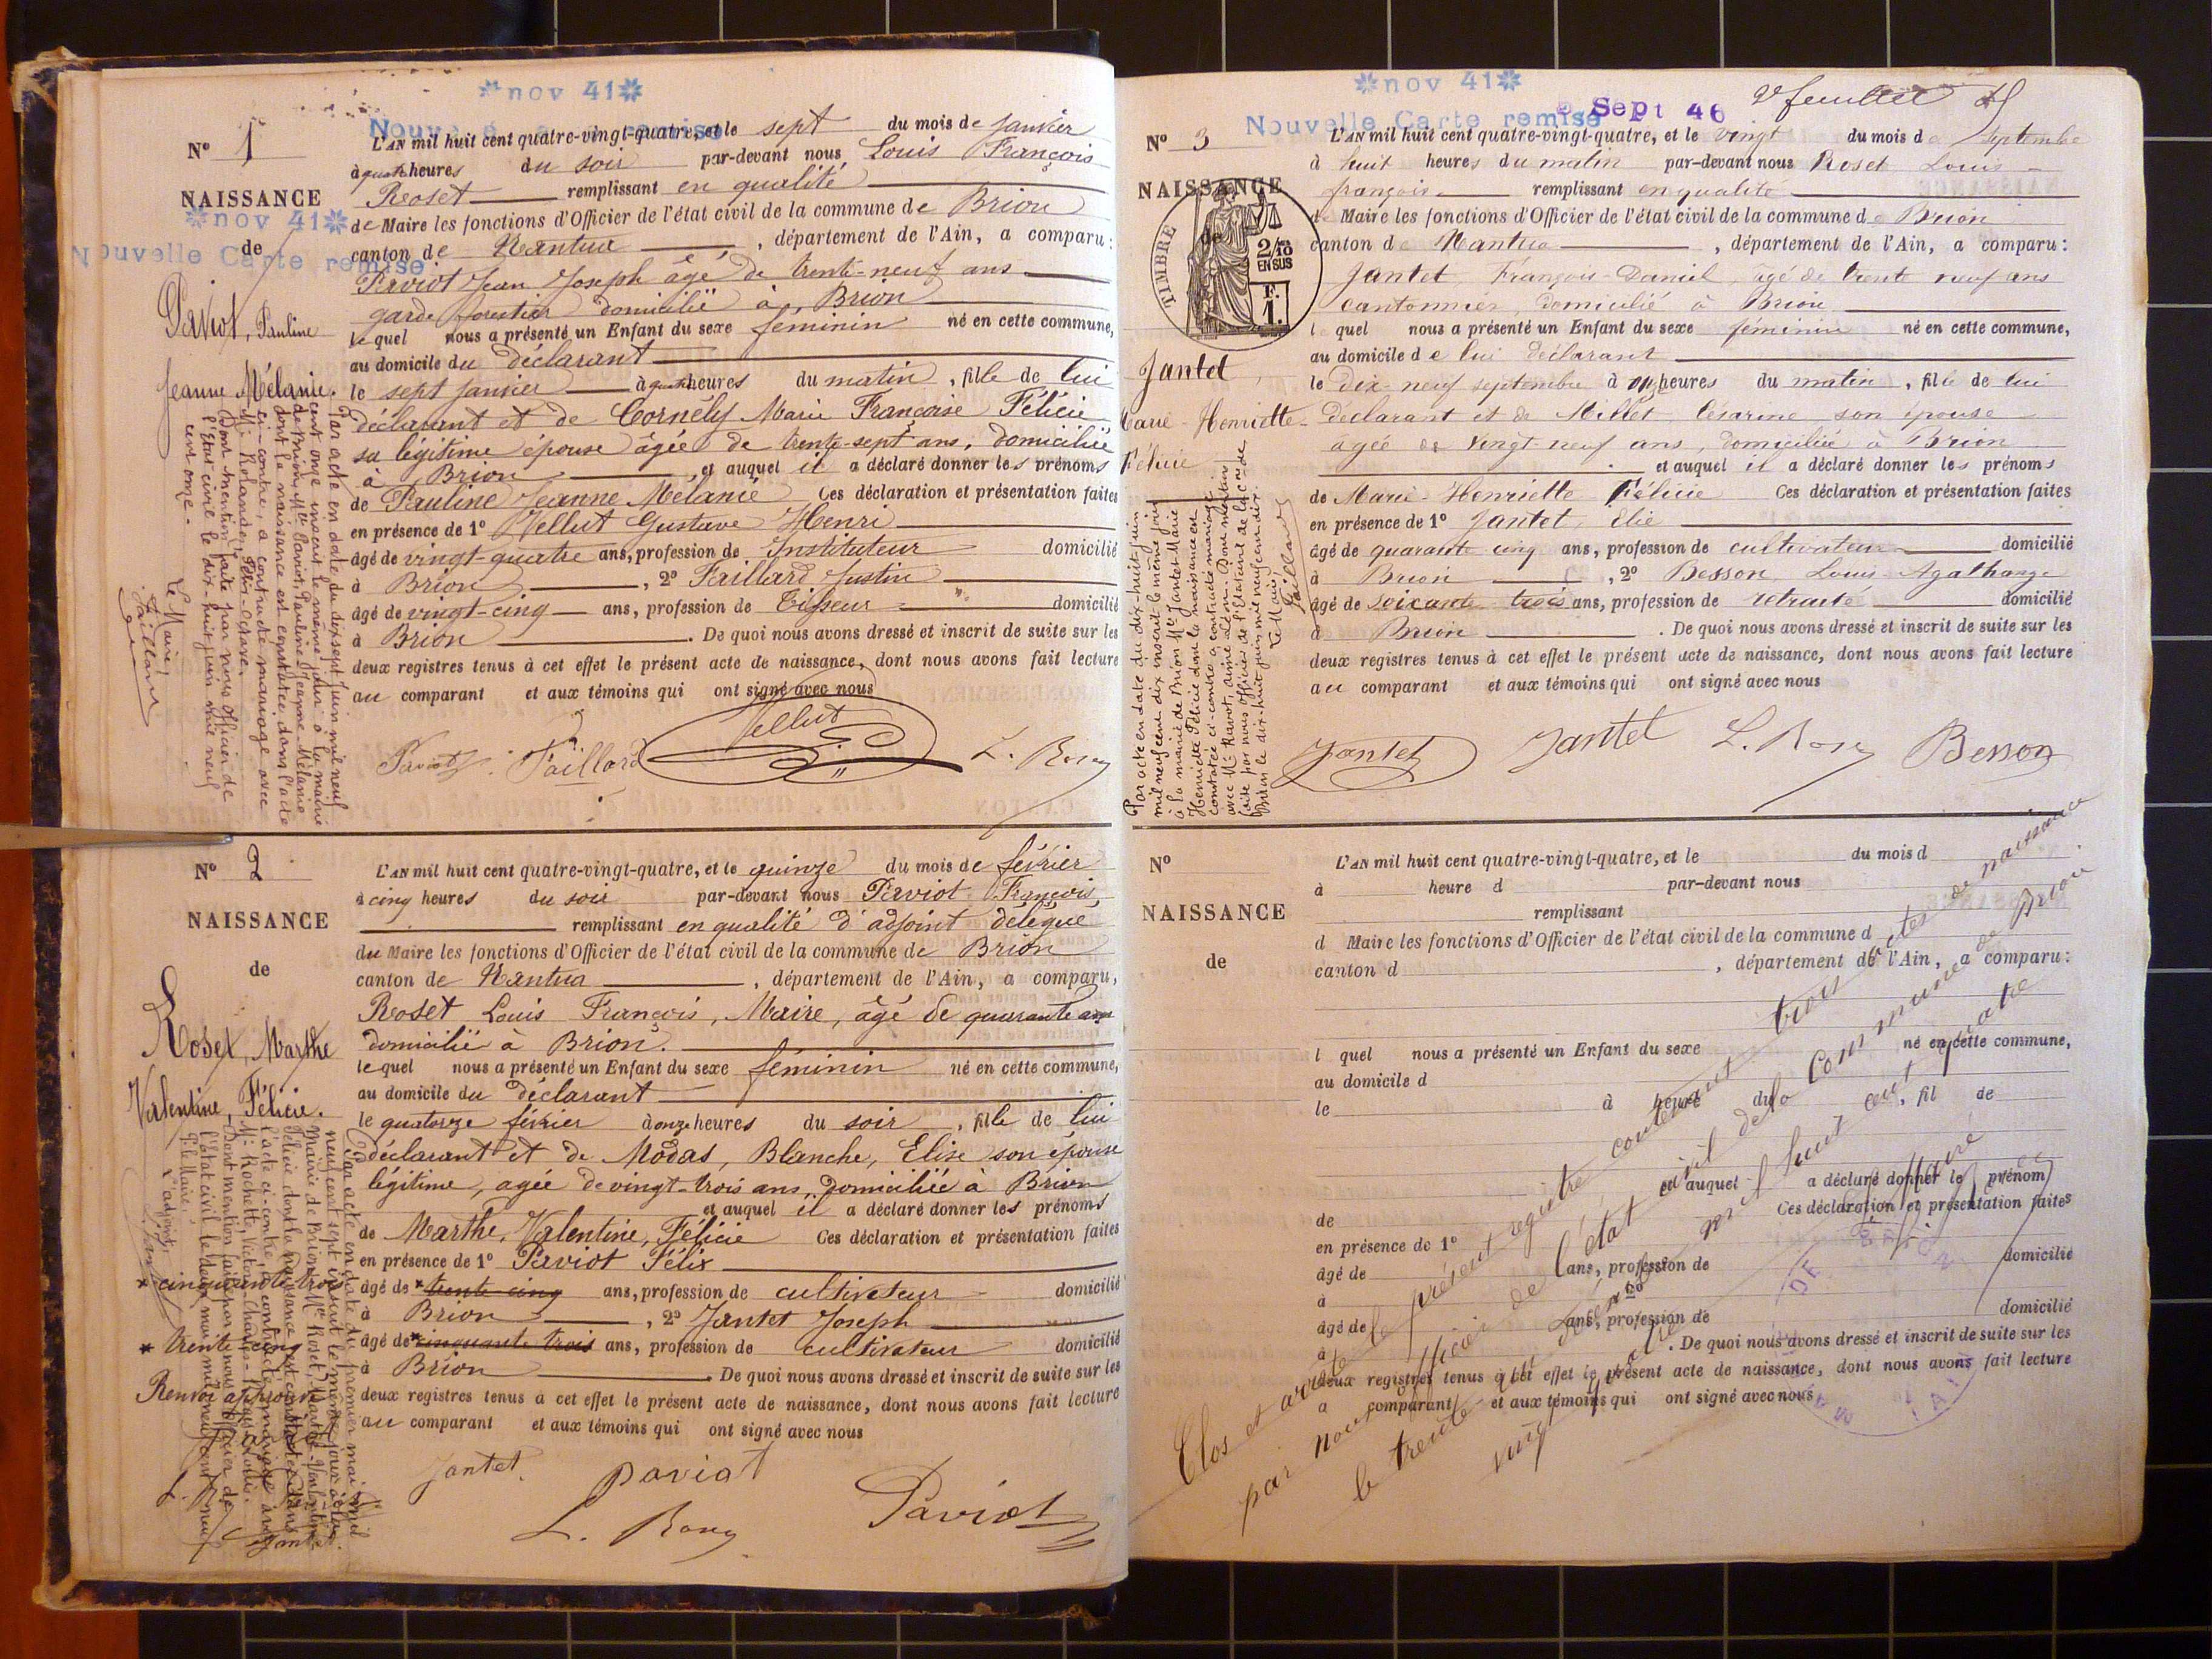 nov 41
Nouvelle Carte remise
N° 1
NAISSANCE
nov 41
de
Nouvelle Carte remise
Paviot, Pauline
Jeanne Mélanie.
L'AN mil huit cent quatre-vingt-quatre, et le sept du mois de janvier
à quatre heures du soir par-devant nous Louis François
Roset remplissant en qualité
de Maire les fonctions d'Officier de l'état civil de la commune de Brion
canton de Nantua, département de l'Ain, a comparu:
Paviot Jean Joseph âgé de trente-neuf ans
garde forestier domicilié à Brion
lequel nous a présenté un Enfant du sexe féminin né en cette commune,
au domicile du déclarant
le sept janvier à quatre heures du matin, fille de lui
déclarant et de Cornély Marie Françoise Félicie
sa légitime épouse âgée de trente-sept ans, domiciliée
à Brion et auquel il a déclaré donner les prénoms
de Pauline Jeanne Mélanie Ces déclaration et présentation faites
en présence de 1° Vellut Gustave Henri
âgé de vingt-quatre ans, profession de Instituteur domicilié
à Brion, 2° Faillard Justin
âgé de vingt-cinq ans, profession de Tisseur domicilié
à Brion. De quoi nous avons dressé et inscrit de suite sur les
deux registres tenus à cet effet le présent acte de naissance, dont nous avons fait lecture
au comparant et aux témoins qui ont signé avec nous
Par acte en date du dix sept juin mil neuf
cent onze inscrit le même jour à la mairie
de Brion Mlle Paviot, Pauline Jeanne Mélanie
dont la naissance est constatée dans l'acte
ci-contre, a contracté mariage avec
dont mention faite par nous officier de
l'Etat civil le dix-huit juin mil neuf
cent onze.
Le Maire,
Faillard
Paviot Faillard Vellut L. Roset
N° 2
NAISSANCE
de
Roset, Marthe
Valentine, Félicie.
L'AN mil huit cent quatre-vingt-quatre, et le quinze du mois de février
à cinq heures du soir par-devant nous Paviot François,
remplissant en qualité d'adjoint délégué
du Maire les fonctions d'Officier de l'état civil de la commune de Brion
canton de Nantua, département de l'Ain, a comparu,
Roset Louis François, Maire, âgé de quarante ans
domicilié à Brion.
lequel nous a présenté un Enfant du sexe féminin né en cette commune,
au domicile du déclarant
le quatorze février à onze heures du soir, fille de lui
déclarant et de Modas, Blanche, Elise son épouse
légitime, agée de vingt-trois ans, domiciliée à Brion
et auquel il a déclaré donner les prénoms
de Marthe, Valentine, Félicie Ces déclaration et présentation faites
en présence de 1° Paviot Félix
* cinquante trois
âgé de * trente cinq ans, profession de cultivateur domicilié
à Brion, 2° Jantet Joseph
* trente cinq
âgé de * cinquante trois ans, profession de cultivateur domicilié
à Brion. De quoi nous avons dressé et inscrit de suite sur les
Renvoi approuvé
deux registres tenus à cet effet le présent acte de naissance, dont nous avons fait lecture
au comparant et aux témoins qui ont signé avec nous
Jantet Paviot
L. Roset Paviot
nov 41
Nouvelle Carte remise
Sept 46
2e feuillet
N° 3
NAISSANCE
de
TIMBRE
2/10
EN SUS
F.
1.
Jantet,
Marie-Henriette-
Félicie
L'AN mil huit cent quatre-vingt-quatre, et le vingt du mois de Septembre
à huit heures du matin par-devant nous Roset Louis
françois remplissant en qualité
de Maire les fonctions d'Officier de l'état civil de la commune de Brion
canton de Nantua, département de l'Ain, a comparu:
Jantet, François-Daniel, âgé de trente neuf ans
cantonnier, domicilié à Brion
lequel nous a présenté un Enfant du sexe féminin né en cette commune,
au domicile de lui déclarant
le dix-neuf septembre à onze heures du matin, fille de lui
déclarant et de Millet Césarine son épouse
agée de vingt neuf ans, domiciliée à Brion
et auquel il a déclaré donner les prénoms
de Marie-Henriette Félicie Ces déclaration et présentation faites
en présence de 1° Jantet, Elie
âgé de quarante cinq ans, profession de cultivateur domicilié
à Brion, 2° Besson, Louis Agathange
âgé de soixante trois ans, profession de retraité domicilié
à Brion. De quoi nous avons dressé et inscrit de suite sur les
deux registres tenus à cet effet le présent acte de naissance, dont nous avons fait lecture
au comparant et aux témoins qui ont signé avec nous
Par acte en date du dix-huit juin
mil neuf cent dix inscrit le même jour
à la mairie de Brion Mlle Jantet Marie
Henriette Félicie dont la naissance est
constatée ci-contre a contracté mariage
Le Maire,
Faillard
Jantet Jantet L. Roset Besson
N°
NAISSANCE
de
L'AN mil huit cent quatre-vingt-quatre, et le du mois d
à heure d par-devant nous
remplissant
d Maire les fonctions d'Officier de l'état civil de la commune d
canton d, département de l'Ain, a comparu:
l quel nous a présenté un Enfant du sexe né en cette commune,
au domicile d
le à heure du, fil de
et auquel a déclaré donner le prénom
de Ces déclaration et présentation faites
en présence de 1°
âgé de ans, profession de domicilié
à, 2°
âgé de ans, profession de domicilié
à. De quoi nous avons dressé et inscrit de suite sur les
deux registres tenus à cet effet le présent acte de naissance, dont nous avons fait lecture
a comparant et aux témoins qui ont signé avec nous
Clos et arrêté le présent registre contenant trois actes de naissance
par nous officier de l'état civil de la commune de Brion
le trente mil huit cent quatre
vingt